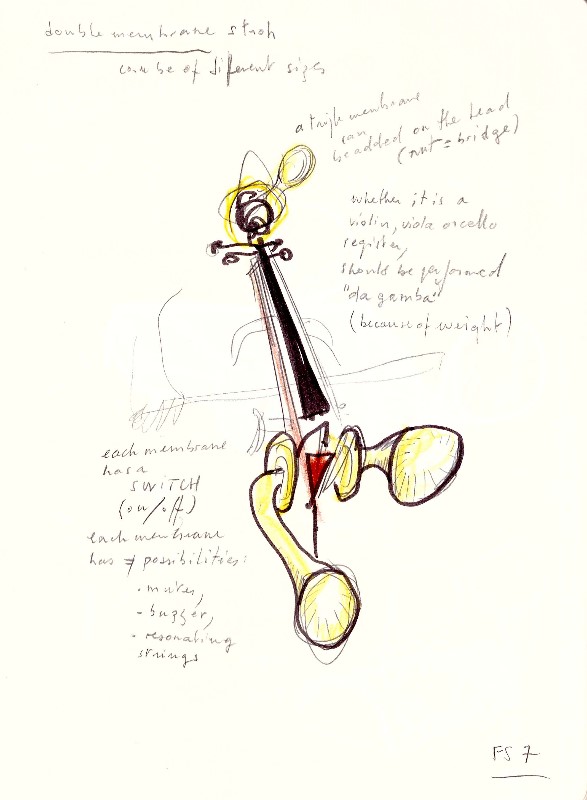 double membrane stroh
can be of different sizes
a triple membrane
can
be added on the head
(nut = bridge)
whether it is a
violin, viola or cello
register,
should be performed
"da gamba"
(because of weight)
each membrane
has a
SWITCH
(on/off)
each membrane
has ≠ possibilities:
- mutes,
- buzzer,
- resonating
strings
FS 7